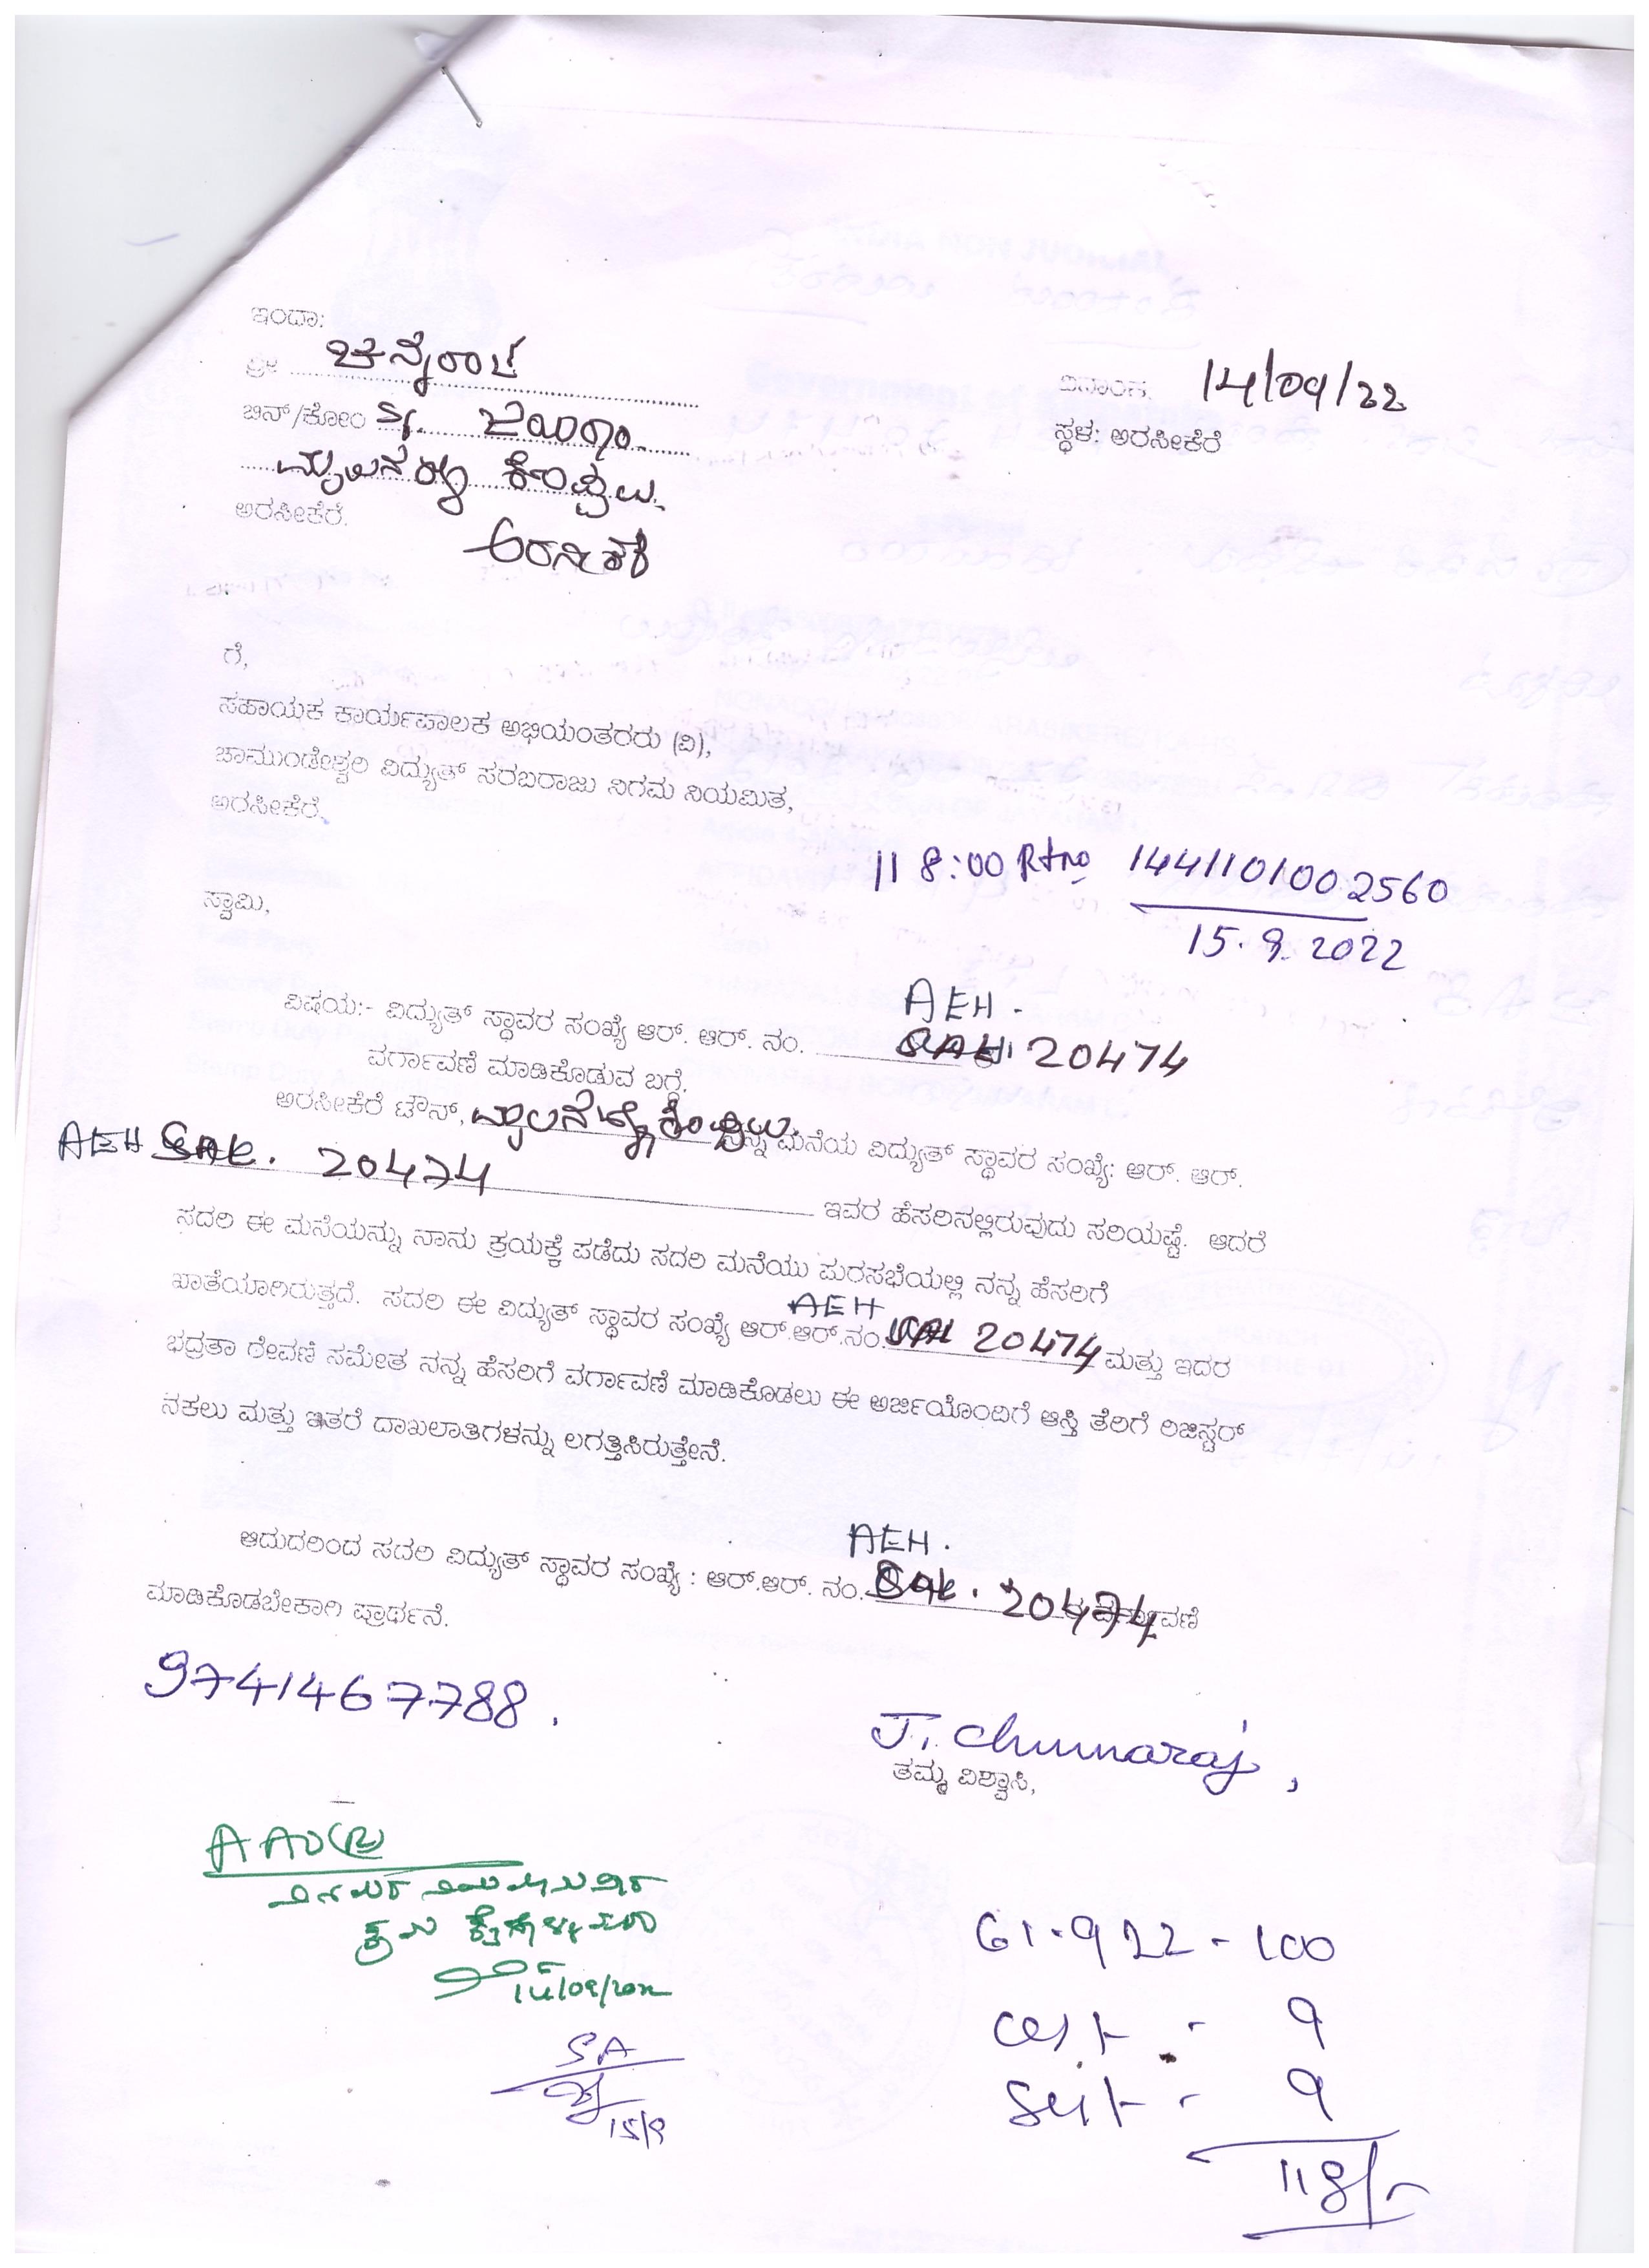 ಇಂದಾ:
ಶ್ರೀ ಚನ್ನರಾಜ
ದಿನಾಂಕ: 14/09/22
ಬಿನ್/ಕೋಂ ಜಯರಾಂ
ಸ್ಥಳ: ಅರಸೀಕೆರೆ
ಅರಸೀಕೆರೆ.
ಅರಸೀಕೆರೆ
ಗೆ,
ಸಹಾಯಕ ಕಾರ್ಯಪಾಲಕ ಅಭಿಯಂತರರು (ವಿ),
ಚಾಮುಂಡೇಶ್ವರಿ ವಿದ್ಯುತ್ ಸರಬರಾಜು ನಿಗಮ ನಿಯಮಿತ,
ಅರಸೀಕೆರೆ.
118:00 Rtno 1441101002560
15.9.2022
ಸ್ವಾಮಿ,
AEH.
ವಿಷಯ:- ವಿದ್ಯುತ್ ಸ್ಥಾವರ ಸಂಖ್ಯೆ ಆರ್. ಆರ್. ನಂ. 20474
ವರ್ಗಾವಣೆ ಮಾಡಿಕೊಡುವ ಬಗ್ಗೆ.
ಅರಸೀಕೆರೆ ಟೌನ್, ನನ್ನ ಮನೆಯ ವಿದ್ಯುತ್ ಸ್ಥಾವರ ಸಂಖ್ಯೆ: ಆರ್. ಆರ್.
AEH 20474 ಇವರ ಹೆಸರಿನಲ್ಲಿರುವುದು ಸರಿಯಷ್ಟೆ. ಆದರೆ
ಸದರಿ ಈ ಮನೆಯನ್ನು ನಾನು ಕ್ರಯಕ್ಕೆ ಪಡೆದು ಸದರಿ ಮನೆಯು ಪುರಸಭೆಯಲ್ಲಿ ನನ್ನ ಹೆಸರಿಗೆ
AEH
ಖಾತೆಯಾಗಿರುತ್ತದೆ. ಸದರಿ ಈ ವಿದ್ಯುತ್ ಸ್ಥಾವರ ಸಂಖ್ಯೆ ಆರ್.ಆರ್.ನಂ. 20474 ಮತ್ತು ಇದರ
ಭದ್ರತಾ ಠೇವಣಿ ಸಮೇತ ನನ್ನ ಹೆಸರಿಗೆ ವರ್ಗಾವಣೆ ಮಾಡಿಕೊಡಲು ಈ ಅರ್ಜಿಯೊಂದಿಗೆ ಆಸ್ತಿ ತೆರಿಗೆ ರಿಜಿಸ್ಟರ್
ನಕಲು ಮತ್ತು ಇತರೆ ದಾಖಲಾತಿಗಳನ್ನು ಲಗತ್ತಿಸಿರುತ್ತೇನೆ.
AEH.
ಆದುದರಿಂದ ಸದರಿ ವಿದ್ಯುತ್ ಸ್ಥಾವರ ಸಂಖ್ಯೆ : ಆರ್.ಆರ್. ನಂ. 20474
ಮಾಡಿಕೊಡಬೇಕಾಗಿ ಪ್ರಾರ್ಥನೆ.
9741467788.
J. Chunnaraj,
ತಮ್ಮ ವಿಶ್ವಾಸಿ,
AAO(R)
SA
15/9
61.922 - 100
cgst - 9
sgst - 9
118/-